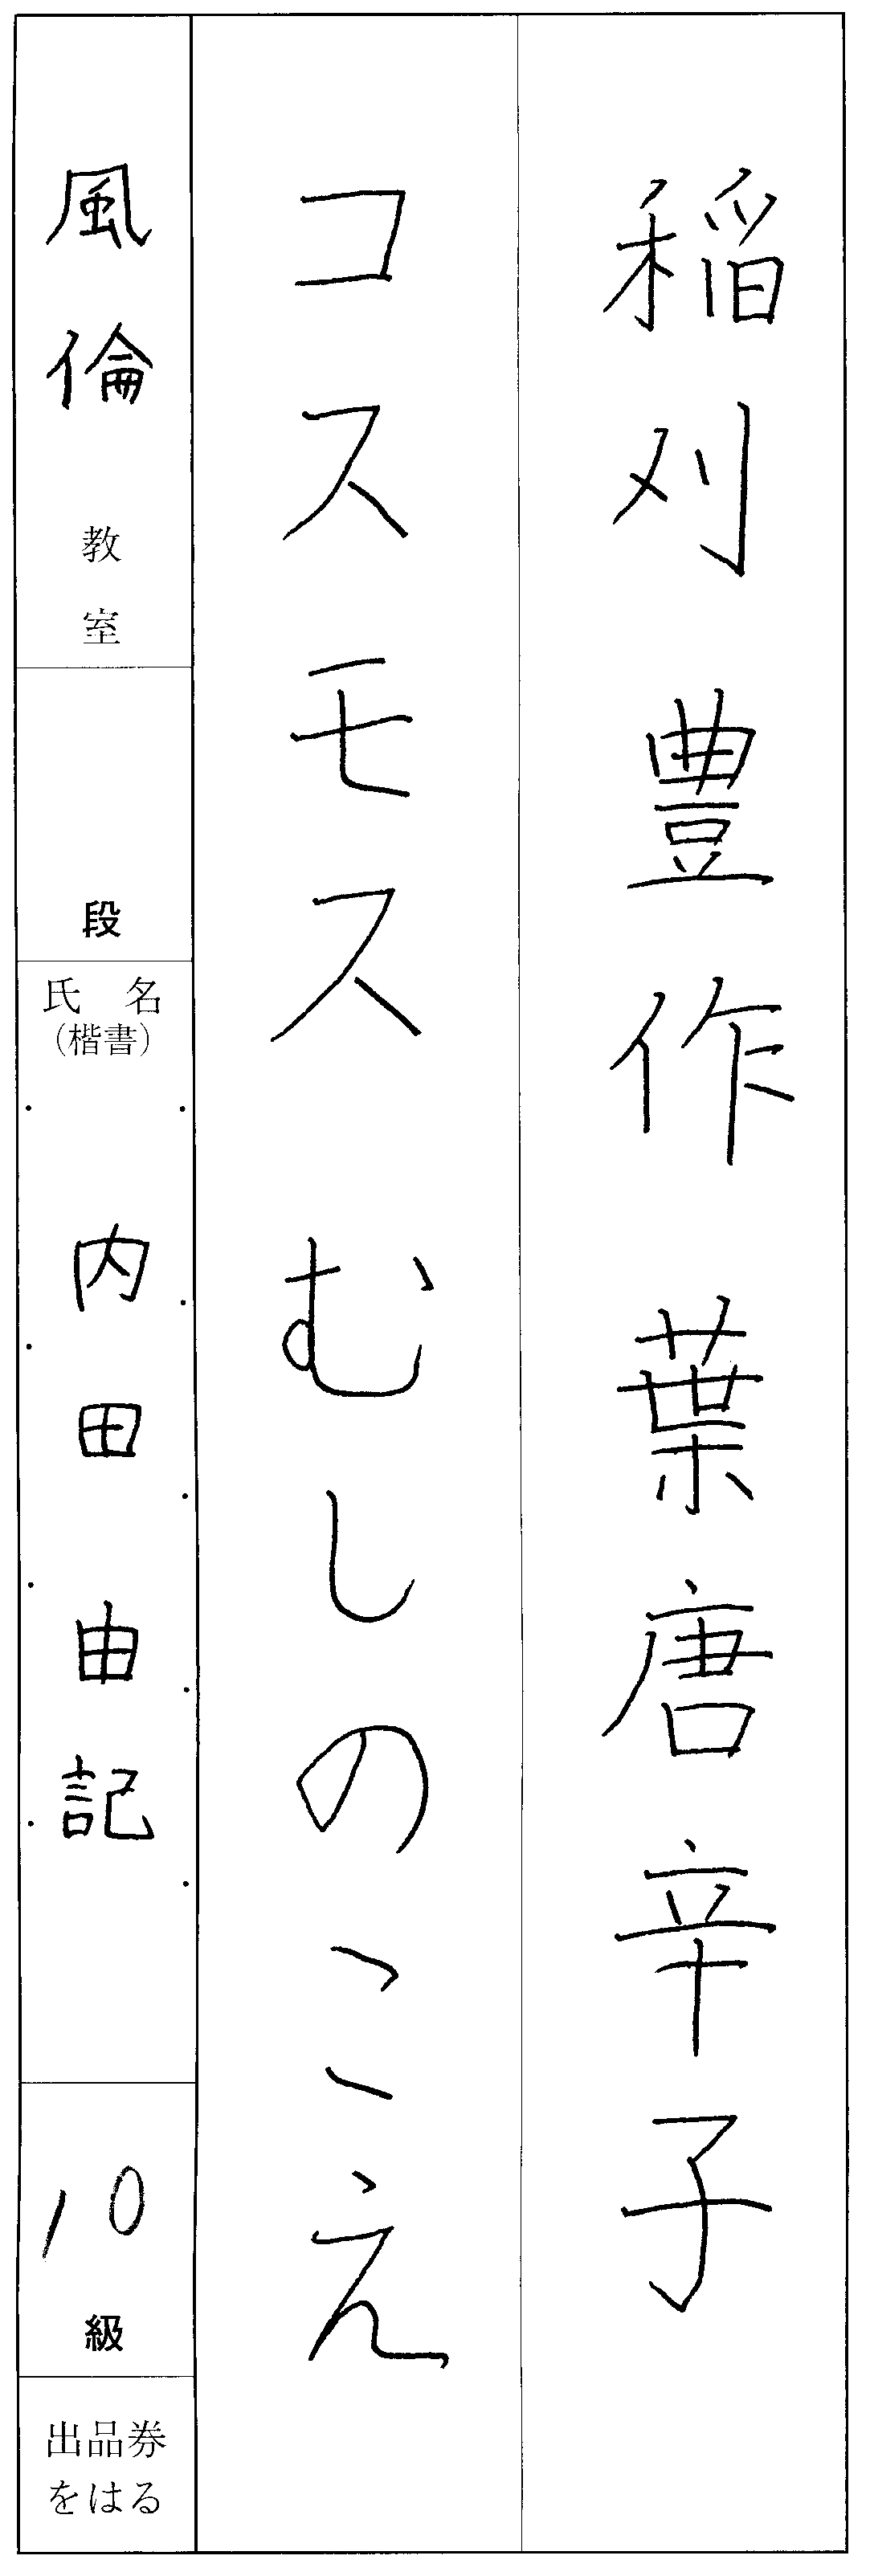 稲刈豊作 葉唐辛子
コスモス むしのこえ
風倫教室
段
氏名
(楷書)
内田由記
10級
出品券
をはる